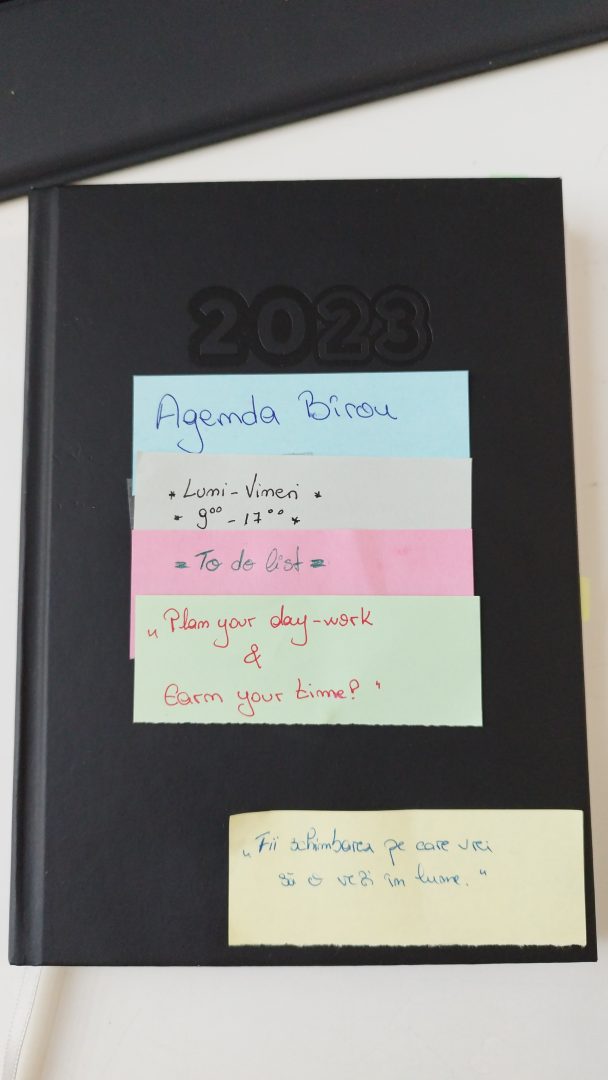 2023
Agenda Birou
* Luni - Vineri *
* 9⁰⁰ - 17⁰⁰ *
= To do list =
„Plan your day-work
&
Earn your time! "
„Fii schimbarea pe care vrei
să o vezi în lume. "